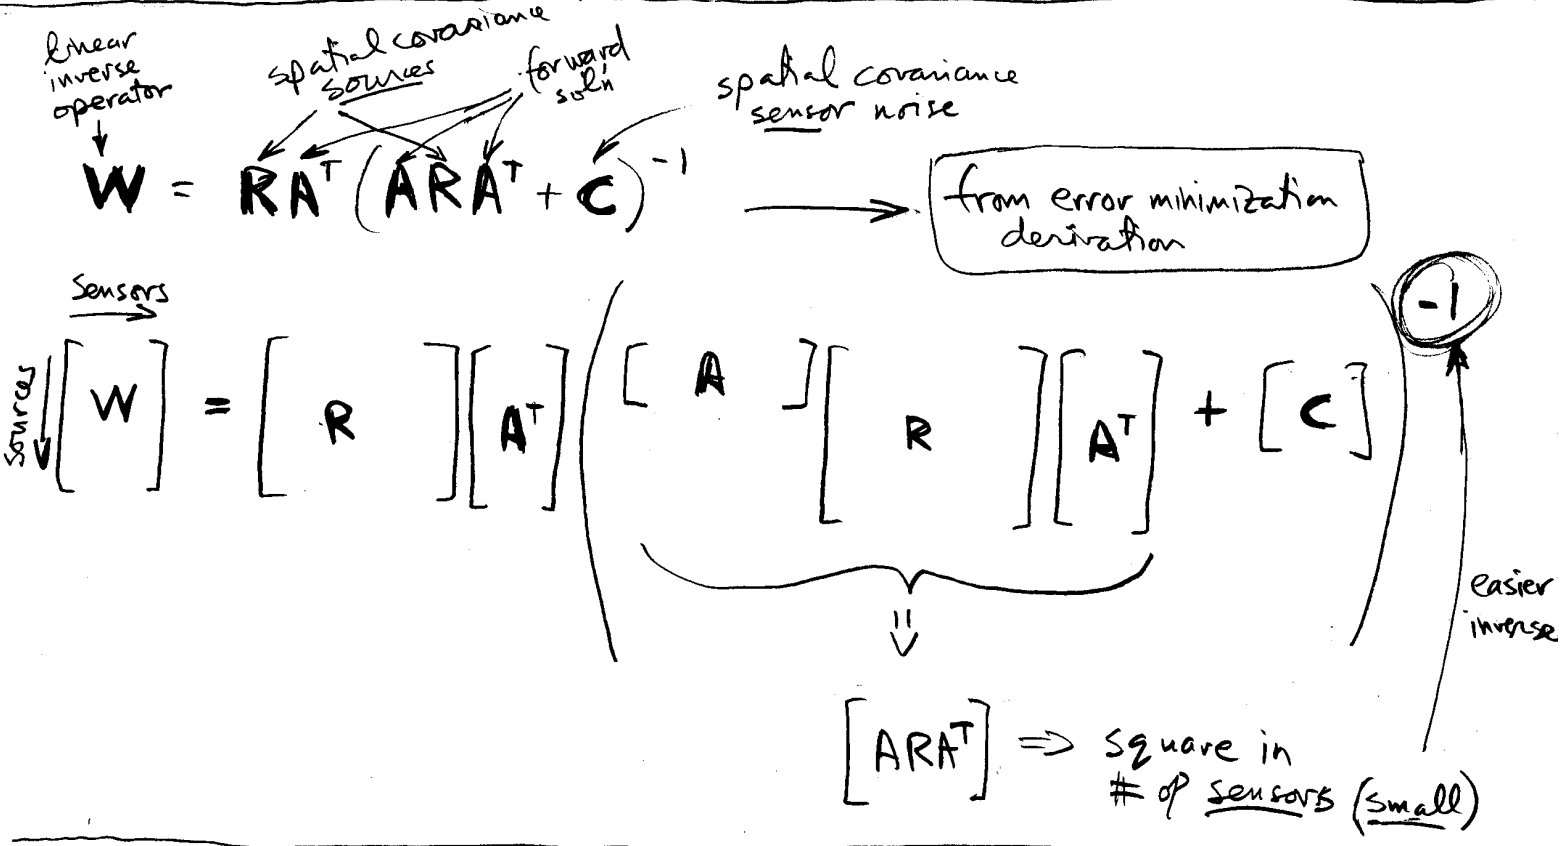 linear
inverse
operator
spatial covariance
sources
forward
sol'n
spatial covariance
sensor noise
W = RAᵀ(ARAᵀ + C)⁻¹
from error minimization
derivation
sensors
sources
[W] = [R][Aᵀ]([A][R][Aᵀ] + [C])⁻¹
easier
inverse
[ARAᵀ] ⇒ square in
# of sensors (small)